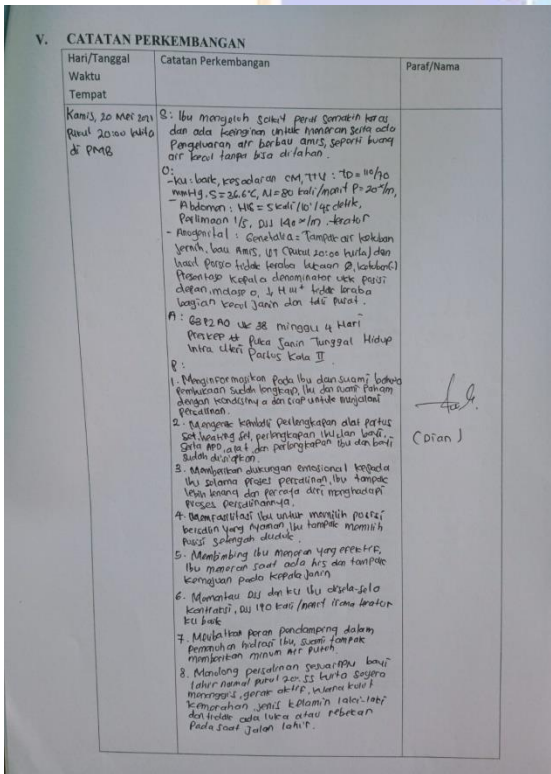 V. CATATAN PERKEMBANGAN
Hari/Tanggal
Waktu
Tempat
Catatan Perkembangan
Paraf/Nama
Kamis, 20 Mei 2021
Pukul 20:00 Wita
di PMB
S: Ibu mengeluh sakit perut semakin keras
dan ada keinginan untuk meneran serta ada
Pengeluaran air berbau amis, seperti buang
air kecil tanpa bisa ditahan.
O:
-Ku: baik, kesadaran CM, TTV: TD= 110/70
mmHg, S=36.6°C, N=80 kali/menit P=20x/m,
Abdomen: HIS = 5kali/10'/45 detik,
Perlimaan 1/5, DJJ 140x/m. teratur
- Anogenital: Genetalia= Tampak air ketuban
Jernih, bau Amis, VT (Pukul 20:00 wita) dan
hasil Porsio tidak teraba
Presentasi kepala denominator UUK posisi
depan, molase 0, ↓ H III+ tidak teraba
bagian kecil janin dan tali pusat.
A: G3P2A0 UK 38 minggu 4 Hari
Preskep Puka Janin Tunggal Hidup
Intra Uteri Partus Kala II
P:
1. Menginformasikan Pada Ibu dan suami bahwa
Pembukaan sudah lengkap, Ibu dan suami Paham
dengan kondisinya dan siap untuk menjalani
Persalinan.
2. Mengecek kembali perlengkapan alat partus
Set, heating set, perlengkapan ibu dan bayi,
Serta APD, alat dan perlengkapan ibu dan bayi
sudah disiapkan.
3. Memberikan dukungan emosional kepada
Ibu selama proses persalinan, Ibu tampak
lebih tenang dan percaya diri menghadapi
proses persalinannya.
4. Memfasilitasi Ibu untuk memilih posisi
bersalin yang nyaman, Ibu tampak memilih
Posisi setengah duduk.
5. Membimbing Ibu meneran yang efektif,
Ibu meneran saat ada his dan tampak
kemajuan pada kepala janin
6. Memantau DJJ dan ku Ibu disela-sela
kontraksi, DJJ 140 kali/menit irama teratur
ku baik
7. Melibatkan peran pendamping dalam
pemenuhan hidrasi Ibu, suami tampak
memberikan minum air putih.
8. Menolong persalinan sesuai APN bayi
lahir normal pukul 20.55 Wita segera
menangis, gerak aktif, warna kulit
kemerahan, jenis kelamin laki-laki
dan tidak ada luka atau robekan
Pada saat Jalan lahir.
(Dian)